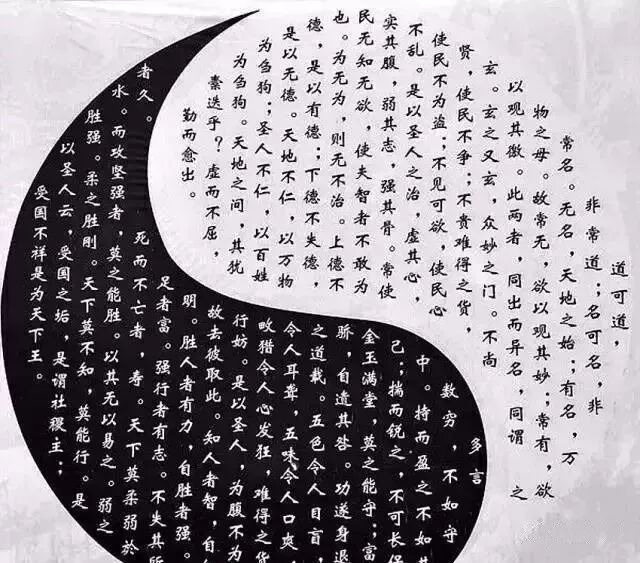 道可道，
非常道；名可名，非
常名。无名，天地之始；有名，万
物之母。故常无，欲以观其妙；常有，欲
以观其徼。此两者，同出而异名，同谓 之
玄。玄之又玄，众妙之门。不尚
贤，使民不争；不贵难得之货，
使民不为盗；不见可欲，使民心
不乱。是以圣人之治，虚其心，
实其腹，弱其志，强其骨。常使
民无知无欲，使夫智者不敢为
也。为无为，则无不治。上德不
德，是以有德；下德不失德，
是以无德。天地不仁，以万物
为刍狗；圣人不仁，以百姓
为刍狗。天地之间，其犹
橐迭乎？虚而不屈，
勤而愈出。
多言
数穷，不如守
中。持而盈之不如其
己；揣而锐之，不可长保
金玉满堂，莫之能守；富
骄，自遗其咎。功遂身退
之道载。五色令人目盲，
令人耳聋，五味令人口爽，
畋猎令人心发狂，难得之货
行妨。是以圣人，为腹不为
故去彼取此。知人者智，自
明。胜人者有力，自胜者强。
足者富。强行者有志。不失其所
者久。 死而不亡者，寿。天下莫柔弱於
水。而攻坚强者，莫之能胜。以其无以易之。弱之
胜强。柔之胜刚。天下莫不知，莫能行。是
以圣人云，受国之垢，是谓社稷主；
受国不祥是为天下王。